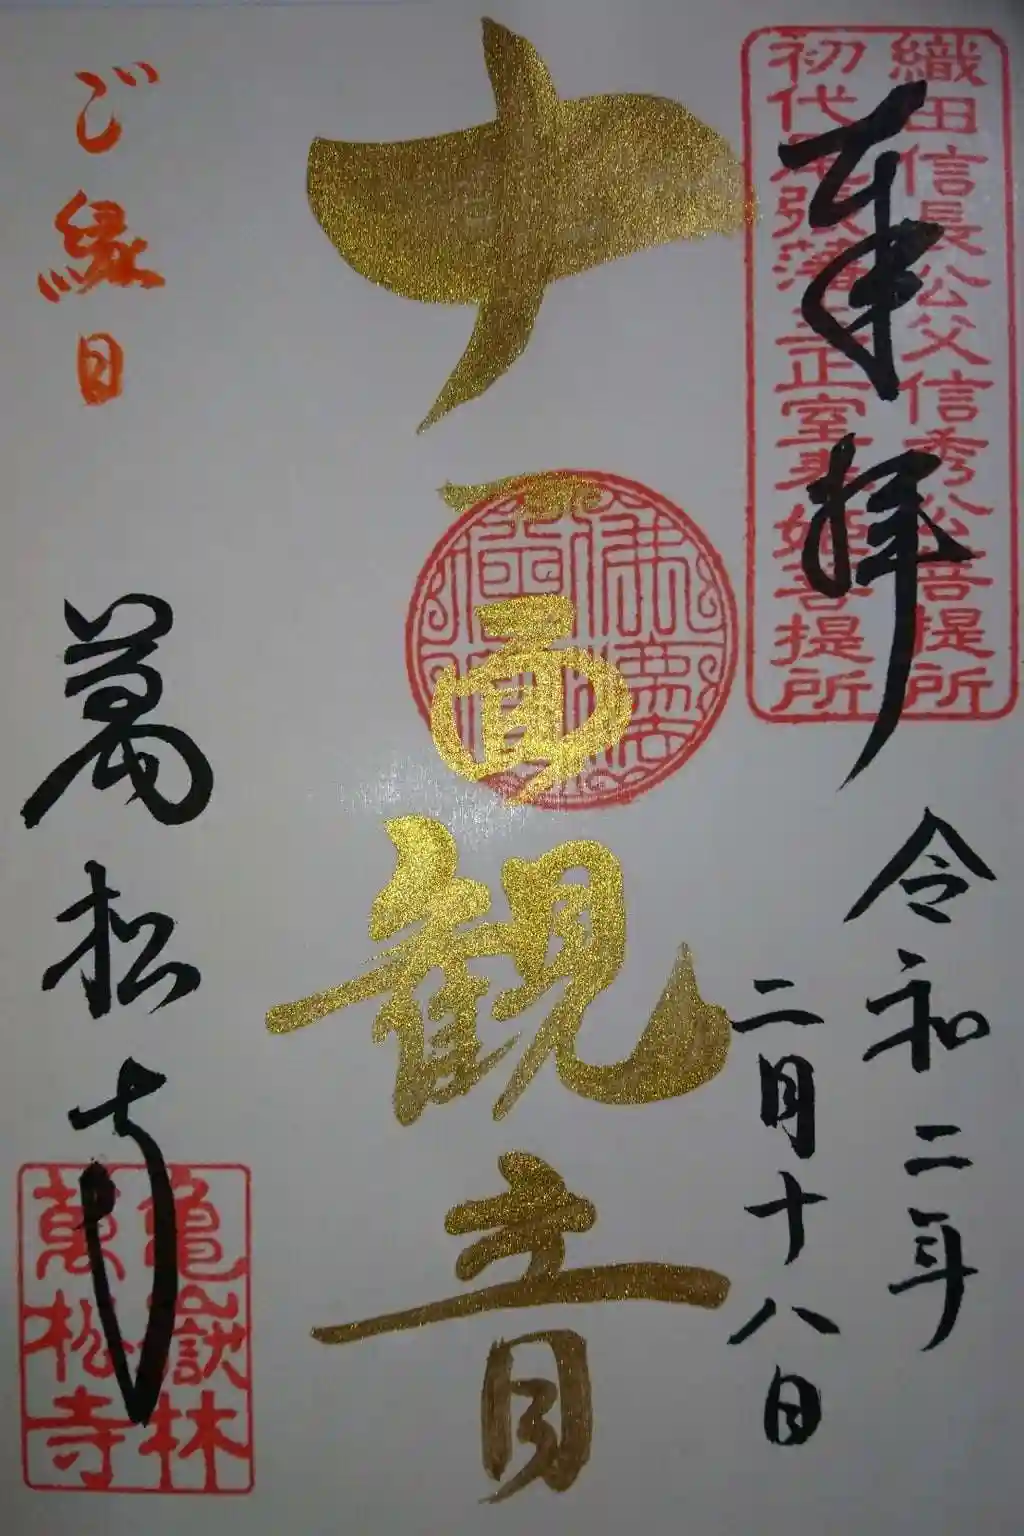 奉拝
織田信長公父信秀公菩提所
初代尾張藩主正室春姫菩提所
令和二年
二月十八日
十一面観音
ご縁日
萬松寺
亀嶽林
萬松寺